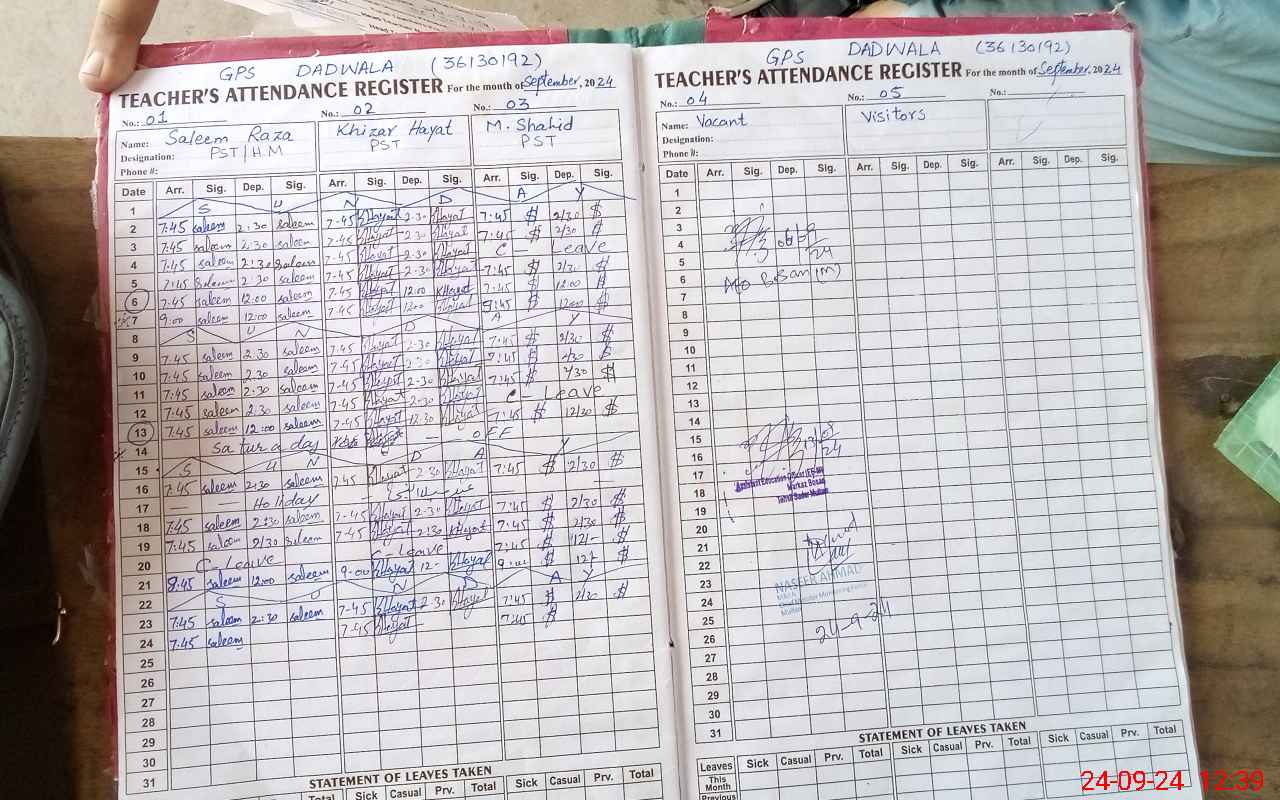 GPS DADWALA (36130192)
TEACHER'S ATTENDANCE REGISTER For the month of September, 2024
No.: 01 No.: 02 No.: 03
Name: Saleem Raza Khizar Hayat M. Shahid
Designation: PST/H.M PST PST
Phone #:
Date Arr. Sig. Dep. Sig. Arr. Sig. Dep. Sig. Arr. Sig. Dep. Sig.
1 S U N D A Y
2 7:45 saleem 2:30 saleem 7-45 KHayat 2-30 KHayat 7:45 $ 2/30 $
3 7:45 saleem 2:30 saleem 7-45 KHayat 2-30 KHayat 7:45 $ 2/30 $
4 7:45 saleem 2:30 saleem 7-45 KHayat 2-30 KHayat C Leave
5 7:45 saleem 2:30 saleem 7-45 KHayat 2-30 KHayat 7:45 $ 2/30 $
6 7:45 saleem 12:00 saleem 7-45 KHayat 12:00 KHayat 7:45 $ 12:00 $
7 9:00 saleem 12:00 saleem 7-45 KHayat 12:00 KHayat 9:45 $ 12:00 $
8 S U N D A Y
9 7.45 saleem 2.30 saleem 7-45 KHayat 2-30 KHayat 7:45 $ 2/30 $
10 7:45 saleem 2.30 saleem 7-45 KHayat 2-30 KHayat 7:45 $ 2/30 $
11 7:45 saleem 2:30 saleem 7-45 KHayat 2-30 KHayat 7:45 $ 2/30 $
12 7:45 saleem 2:30 saleem 7-45 KHayat 2-30 KHayat C- Leave
13 7:45 saleem 12:00 saleem 7-45 KHayat 12.30 KHayat 7:45 $ 12/30 $
14 Saturaday — OFF
15 S U N D A Y
16 7:45 saleem 2:30 saleem 7-45 KHayat 2-30 KHayat 7:45 $ 2/30 $
17 — Holiday —
18 7:45 saleem 2:30 saleem 7-45 KHayat 2-30 KHayat 7:45 $ 2/30 $
19 7:45 saleem 2/30 saleem 7-45 KHayat 2:30 KHayat 7:45 $ 2/30 $
20 C-Leave C-Leave 7:45 $ 12/- $
21 8:45 saleem 12:00 saleem 9-00 KHayat 12- KHayat 9:00 $ 12/- $
22 S U N D A Y
23 7:45 saleem 2:30 saleem 7-45 KHayat 2-30 KHayat 7:45 $ 2/30 $
24 7:45 saleem 7-45 KHayat 7:45 $
25
26
27
28
29
30
31
STATEMENT OF LEAVES TAKEN
Total Sick Casual Prv. Total Sick Casual Prv. Total
GPS DADWALA (36130192)
TEACHER'S ATTENDANCE REGISTER For the month of September, 2024
No.: 04 No.: 05 No.:
Name: Vacant Visitors
Designation:
Phone #:
Date Arr. Sig. Dep. Sig. Arr. Sig. Dep. Sig. Arr. Sig. Dep. Sig.
1
2
3
4
5
6 AEO Bosan (M)
7
8
9
10
11
12
13
14
15
16
17
Assistant Education Officer
18 Markaz Bosan
19
20
21
22
23 NASEER AHMAD
24
25 24-9-24
26
27
28
29
30
31
STATEMENT OF LEAVES TAKEN
Leaves Sick Casual Prv. Total Sick Casual Prv. Total Sick Casual Prv. Total
This Month
Previous
24-09-24 12:39